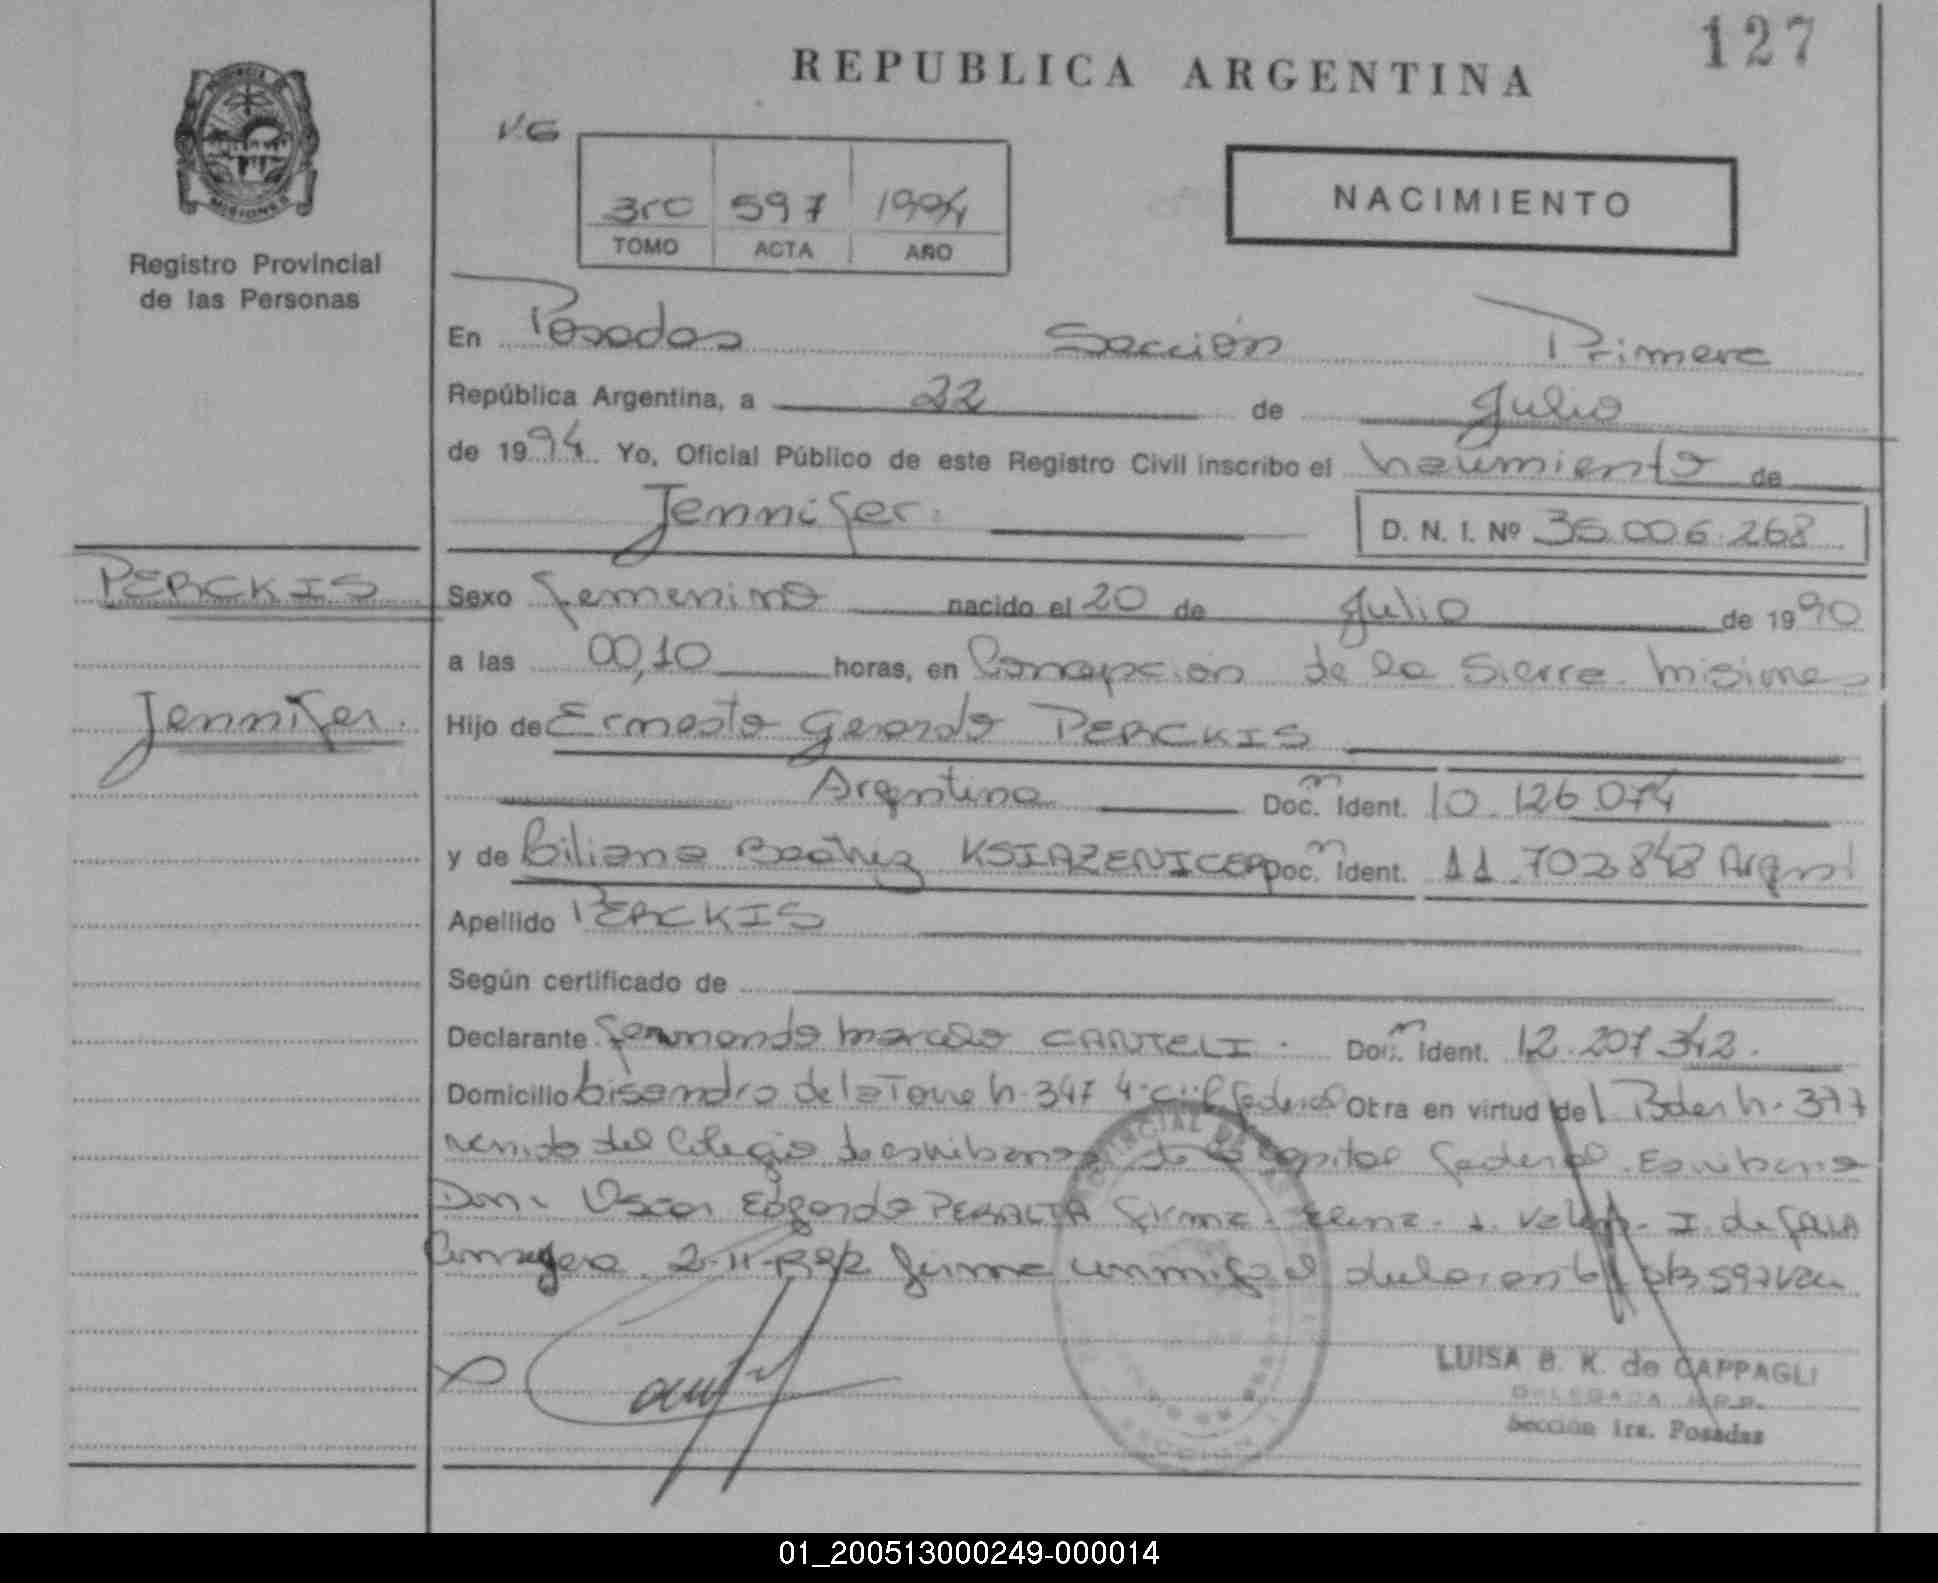 127
REPUBLICA ARGENTINA
MISIONES
Registro Provincial
de las Personas
3ro 597 1994
TOMO ACTA AÑO
NACIMIENTO
En Posadas Sección Primera
República Argentina, a 22 de Julio
de 1994 Yo, Oficial Público de este Registro Civil inscribo el nacimiento de
Jennifer.
D. N. I. Nº 35.006.268
PERCKIS
Jennifer.
Sexo femenino nacido el 20 de Julio de 1990
a las 00,10 horas, en Concepción de la Sierra. Misiones
Hijo de Ernesto Gerardo PERCKIS
Argentina Doc. Ident. 10.126.074
y de Biliana Beatriz Doc. Ident. 11.702.848 Argent
Apellido PERCKIS
Según certificado de
Declarante Fernando Marcelo CANTELI. Doc. Ident. 12.207.342.
Domicilio Lisandro de la Torre n. 347 4. Federal Otra en virtud del Poder n. 377
del Colegio de escribanos de la Capital Federal. Escribano
Don. Oscar Edgardo PERALTA firma. 1. I. de
2-11-1992 firma el
LUISA B. K. de CAPPAGLI
DELEGADA R.P.P.
Sección 1ra. Posadas
01_200513000249-000014